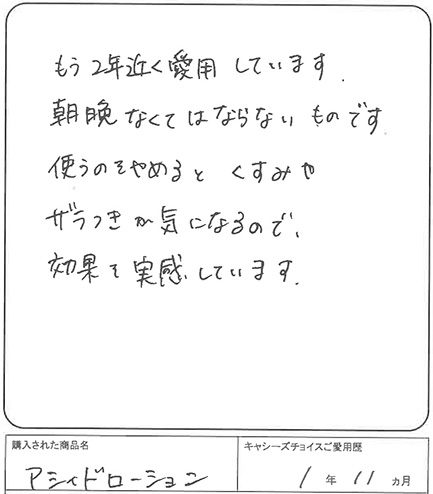 もう2年近く愛用しています.
朝晩なくてはならないものです
使うのをやめるとくすみや
ザラつきが気になるので、
効果を実感しています.
購入された商品名
キャシーズチョイスご愛用歴
アシィドローション
1年11ヵ月